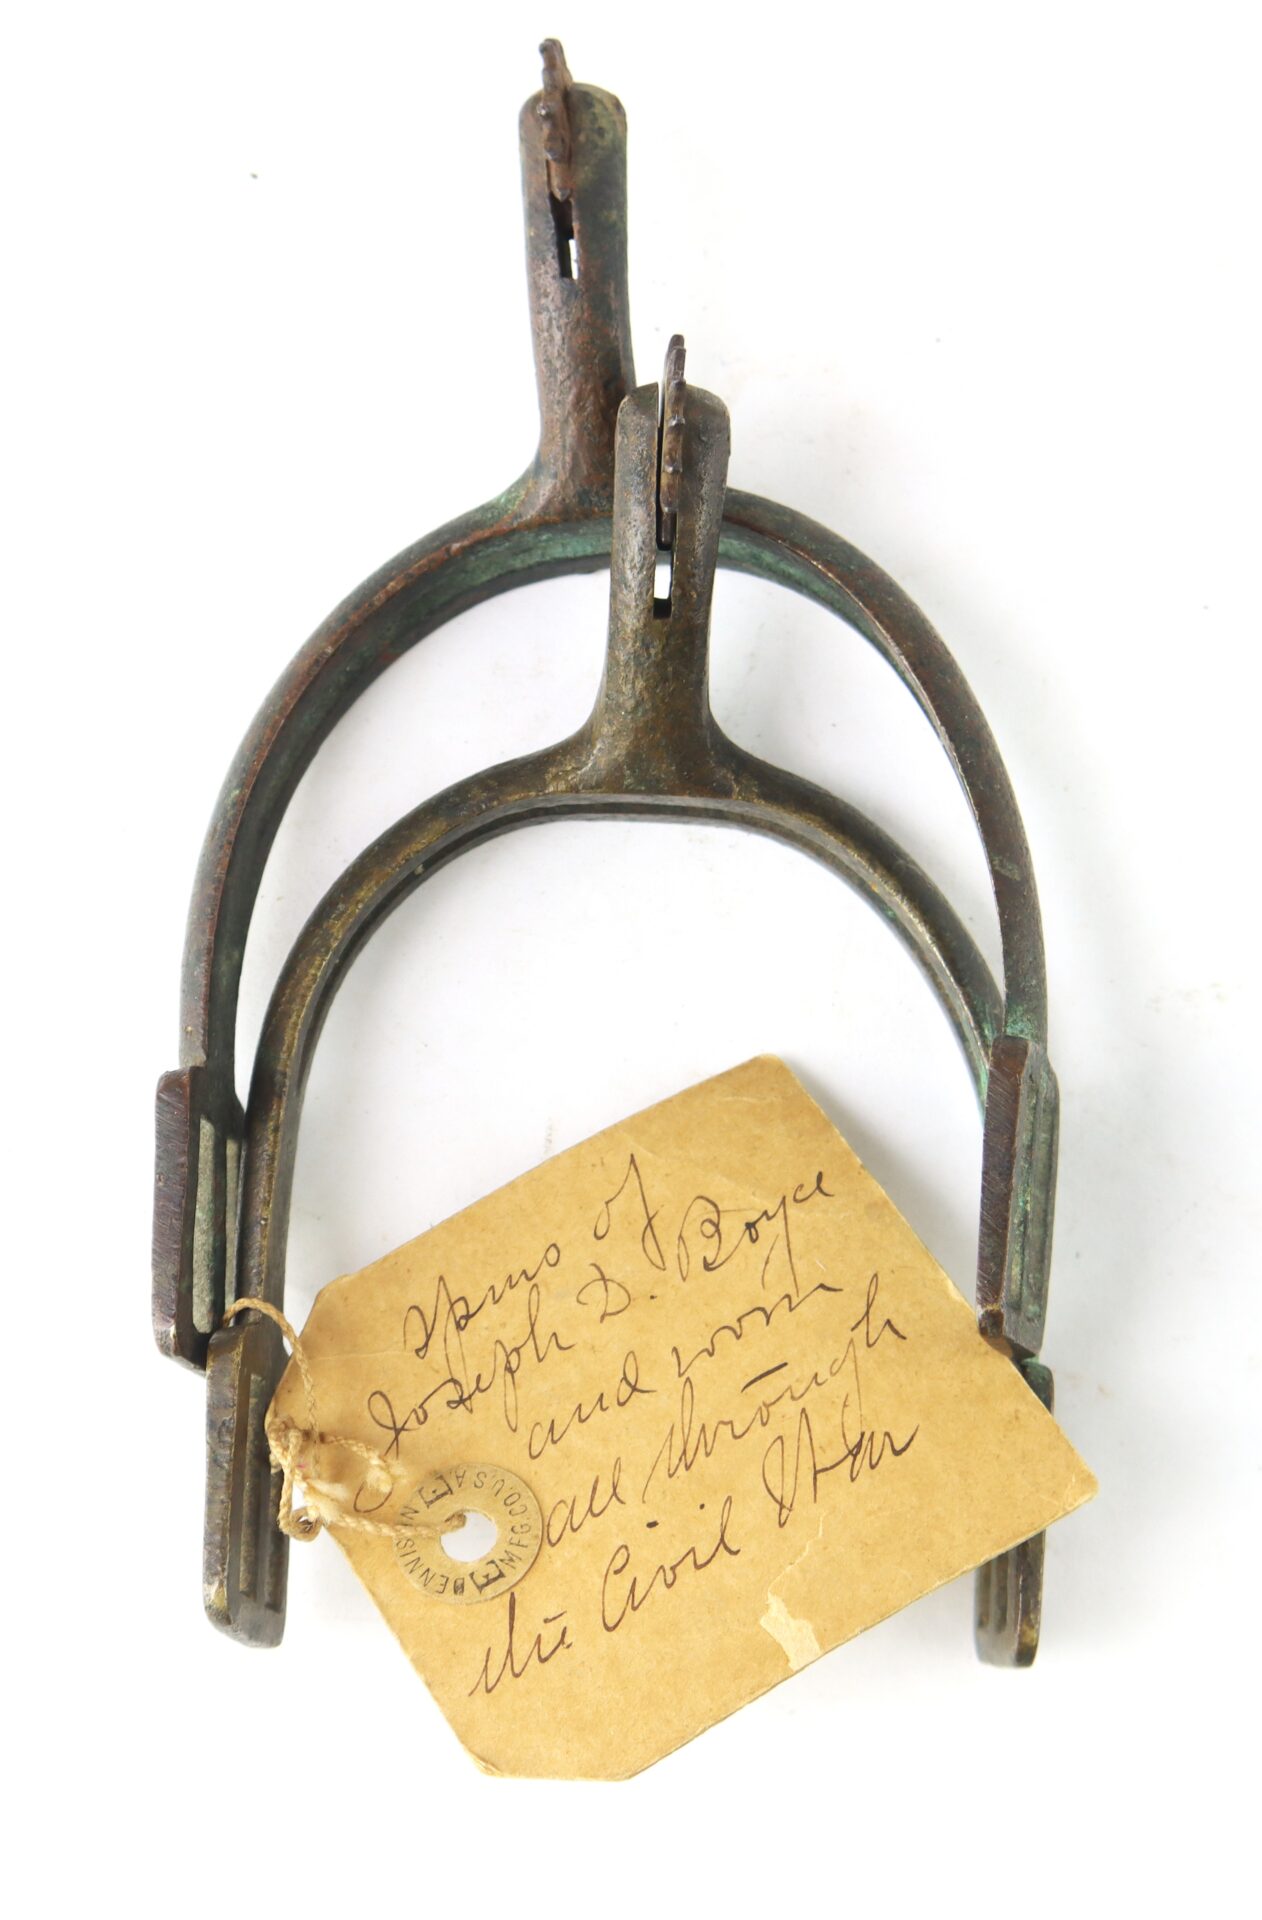 Spurs of
Joseph D. Boyce
and worn
all through
the Civil War
DENNISON MFG.CO.U.S.A.